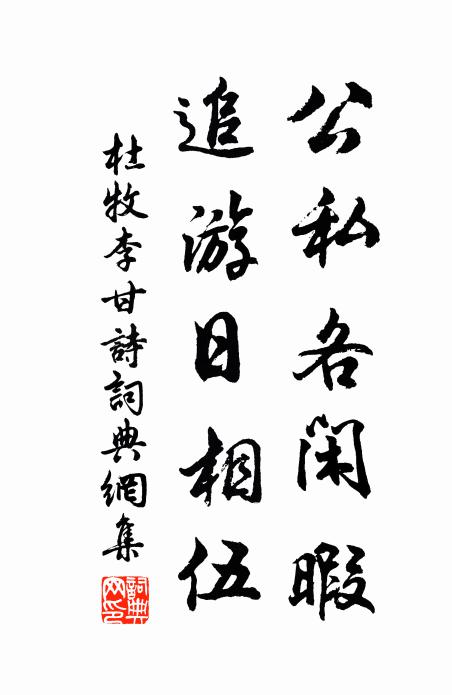 公私各闲暇
追游日相伍
杜牧李甘詩詞典網集
詞典网印